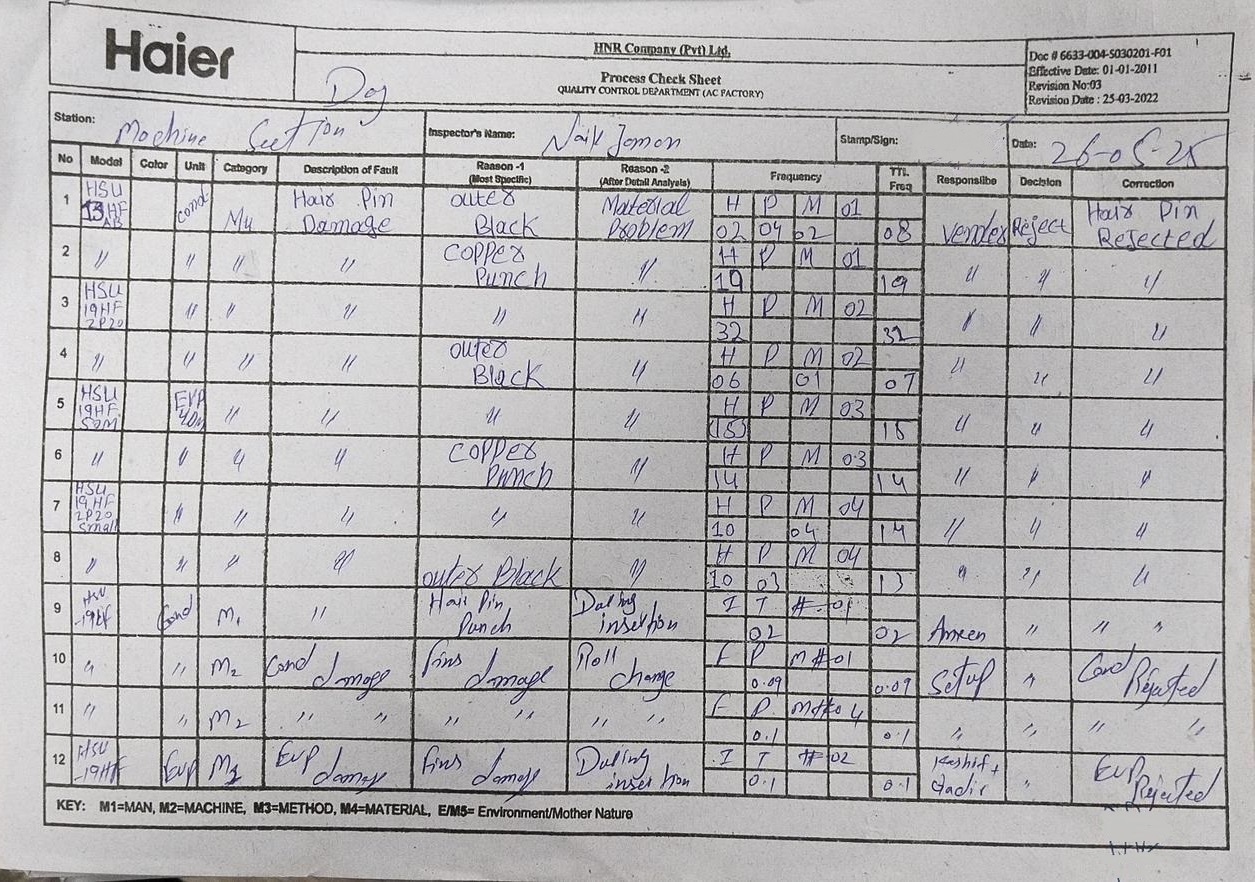 Haier
HNR Company (Pvt) Ltd.
Process Check Sheet
QUALITY CONTROL DEPARTMENT (AC FACTORY)
Doc # 6633-004-5030201-F01
Effective Date: 01-01-2011
Revision No:03
Revision Date : 25-03-2022
Day
Station: Machine Section Inspector's Name: Stamp/Sign: Date: 26-05-25
No Model Color Unit Category Description of Fault Reason -1 (Most Specific) Reason -2 (After Detail Analysis) Frequency TTL Freq Responsilbe Decision Correction
1 HSU 13HF Cond M4 Hair Pin Damage outer Black Material Problem H P M 01 08 vender Reject Hair Pin Rejected
02 04 02
2 〃 〃 〃 〃 copper Punch 〃 H P M 01 19 〃 〃 〃
19
3 HSU 19HF 2P20 〃 〃 〃 〃 〃 H P M 02 32 〃 〃 〃
32
4 〃 〃 〃 〃 outer Black 〃 H P M 02 07 〃 〃 〃
06 01
5 HSU 19HF EVP 〃 〃 〃 〃 H P M 03 15 〃 〃 〃
(15)
6 〃 〃 〃 〃 copper Punch 〃 H P M 03 14 〃 〃 〃
14
7 HSU 19HF 2P20 Small 〃 〃 〃 〃 〃 H P M 04 14 〃 〃 〃
10 04
8 〃 〃 〃 〃 outer Black 〃 H P M 04 13 〃 〃 〃
10 03
9 HSU -19HF Cond M1 〃 Hair Pin Punch During insertion I T #-01 02 Ameen 〃 〃 〃
02
10 〃 〃 M2 Cond damage fins damage Roll change F P M#01 0.09 Setup 〃 Cond Rejected
0.09
11 〃 〃 M2 〃 〃 〃 〃 〃 〃 F P M#04 0.1 〃 〃 〃 〃
0.1
12 HSU -19HF Evp Evp damage fins damage During insertion I T # 02 0.1 Kashif + Qadir 〃 Evp Rejected
0.1
KEY: M1=MAN, M2=MACHINE, M3=METHOD, M4=MATERIAL, E/M5= Environment/Mother Nature